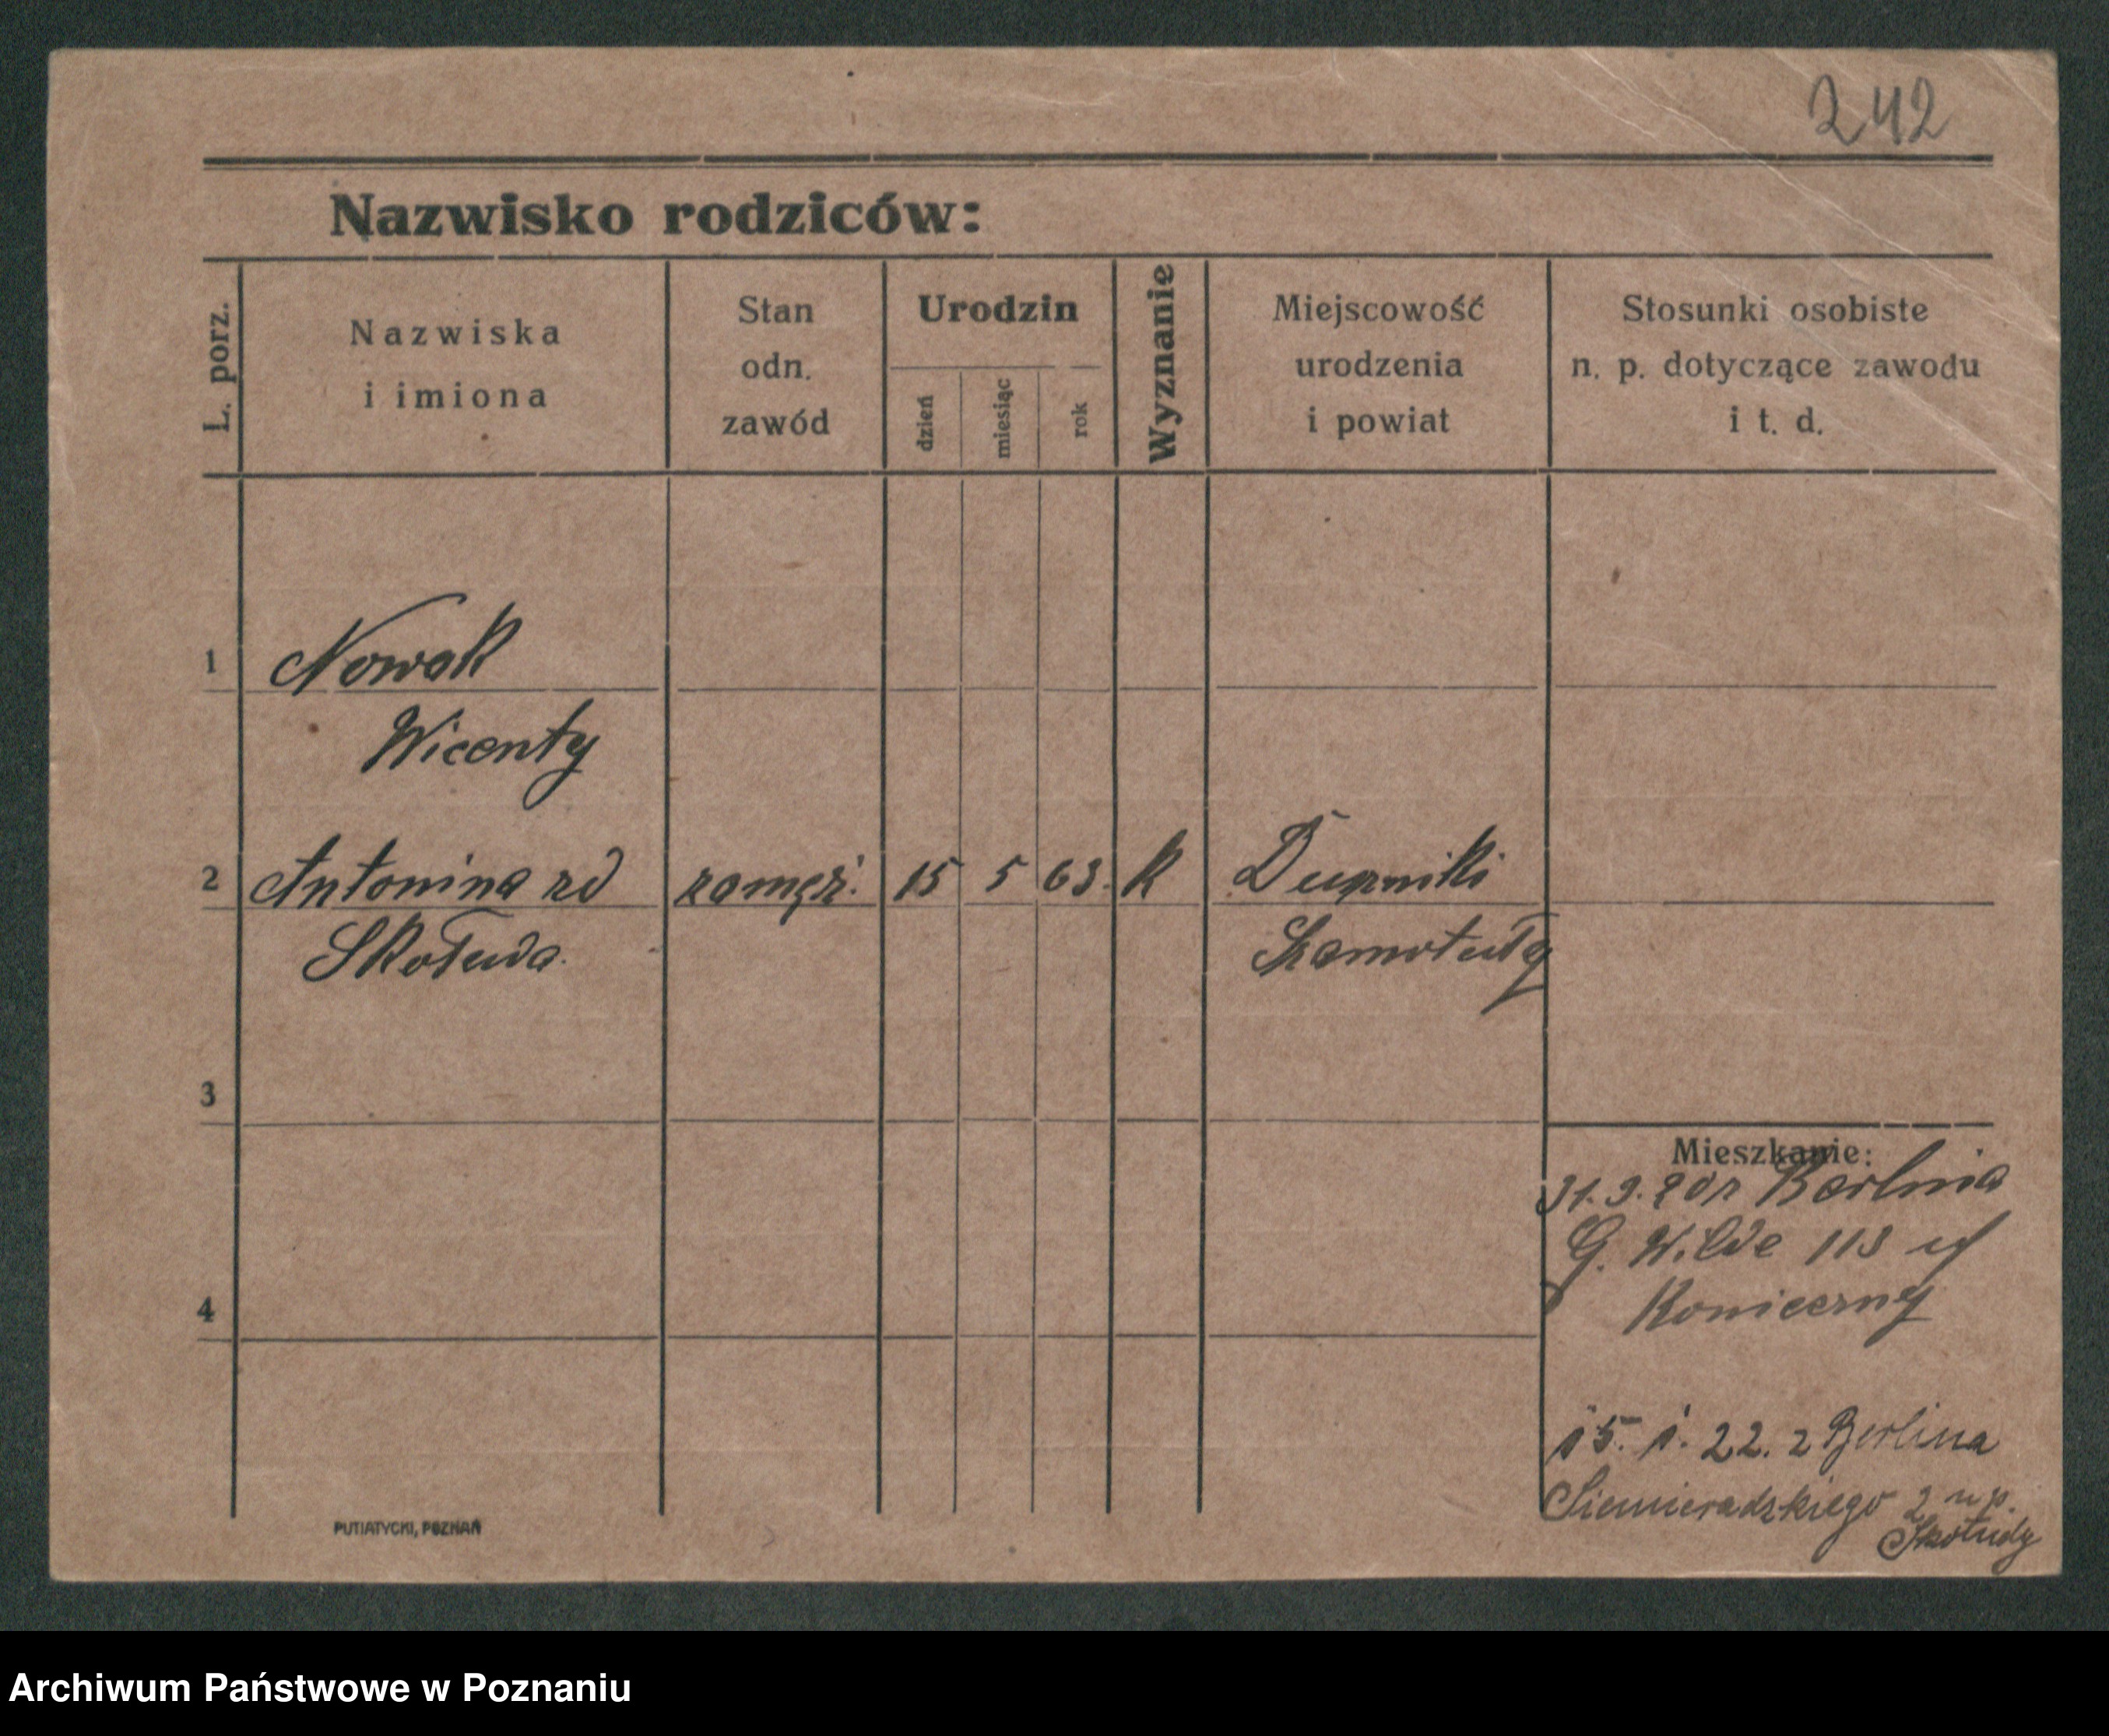 242
Nazwisko rodziców:
L. porz.
Nazwiska
i imiona
Stan
odn.
zawód
Urodzin
dzień
miesiąc
rok
Wyznanie
Miejscowość
urodzenia
i powiat
Stosunki osobiste
n. p. dotyczące zawodu
i t. d.
1 Nowak
Wicenty
2 Antonina zd zamęż. 15 5 63. k Dupniki
Skołuda. Szamotuły
3
Mieszkanie:
31.9. 20 z Berlina
G. Wilde 113 u/
4
Konieczny
15. 1. 22. z Berlina
Siemieradzkiego 2 u p.
Skołudy
PUTIATYCKI, POZNAŃ
Archiwum Państwowe w Poznaniu